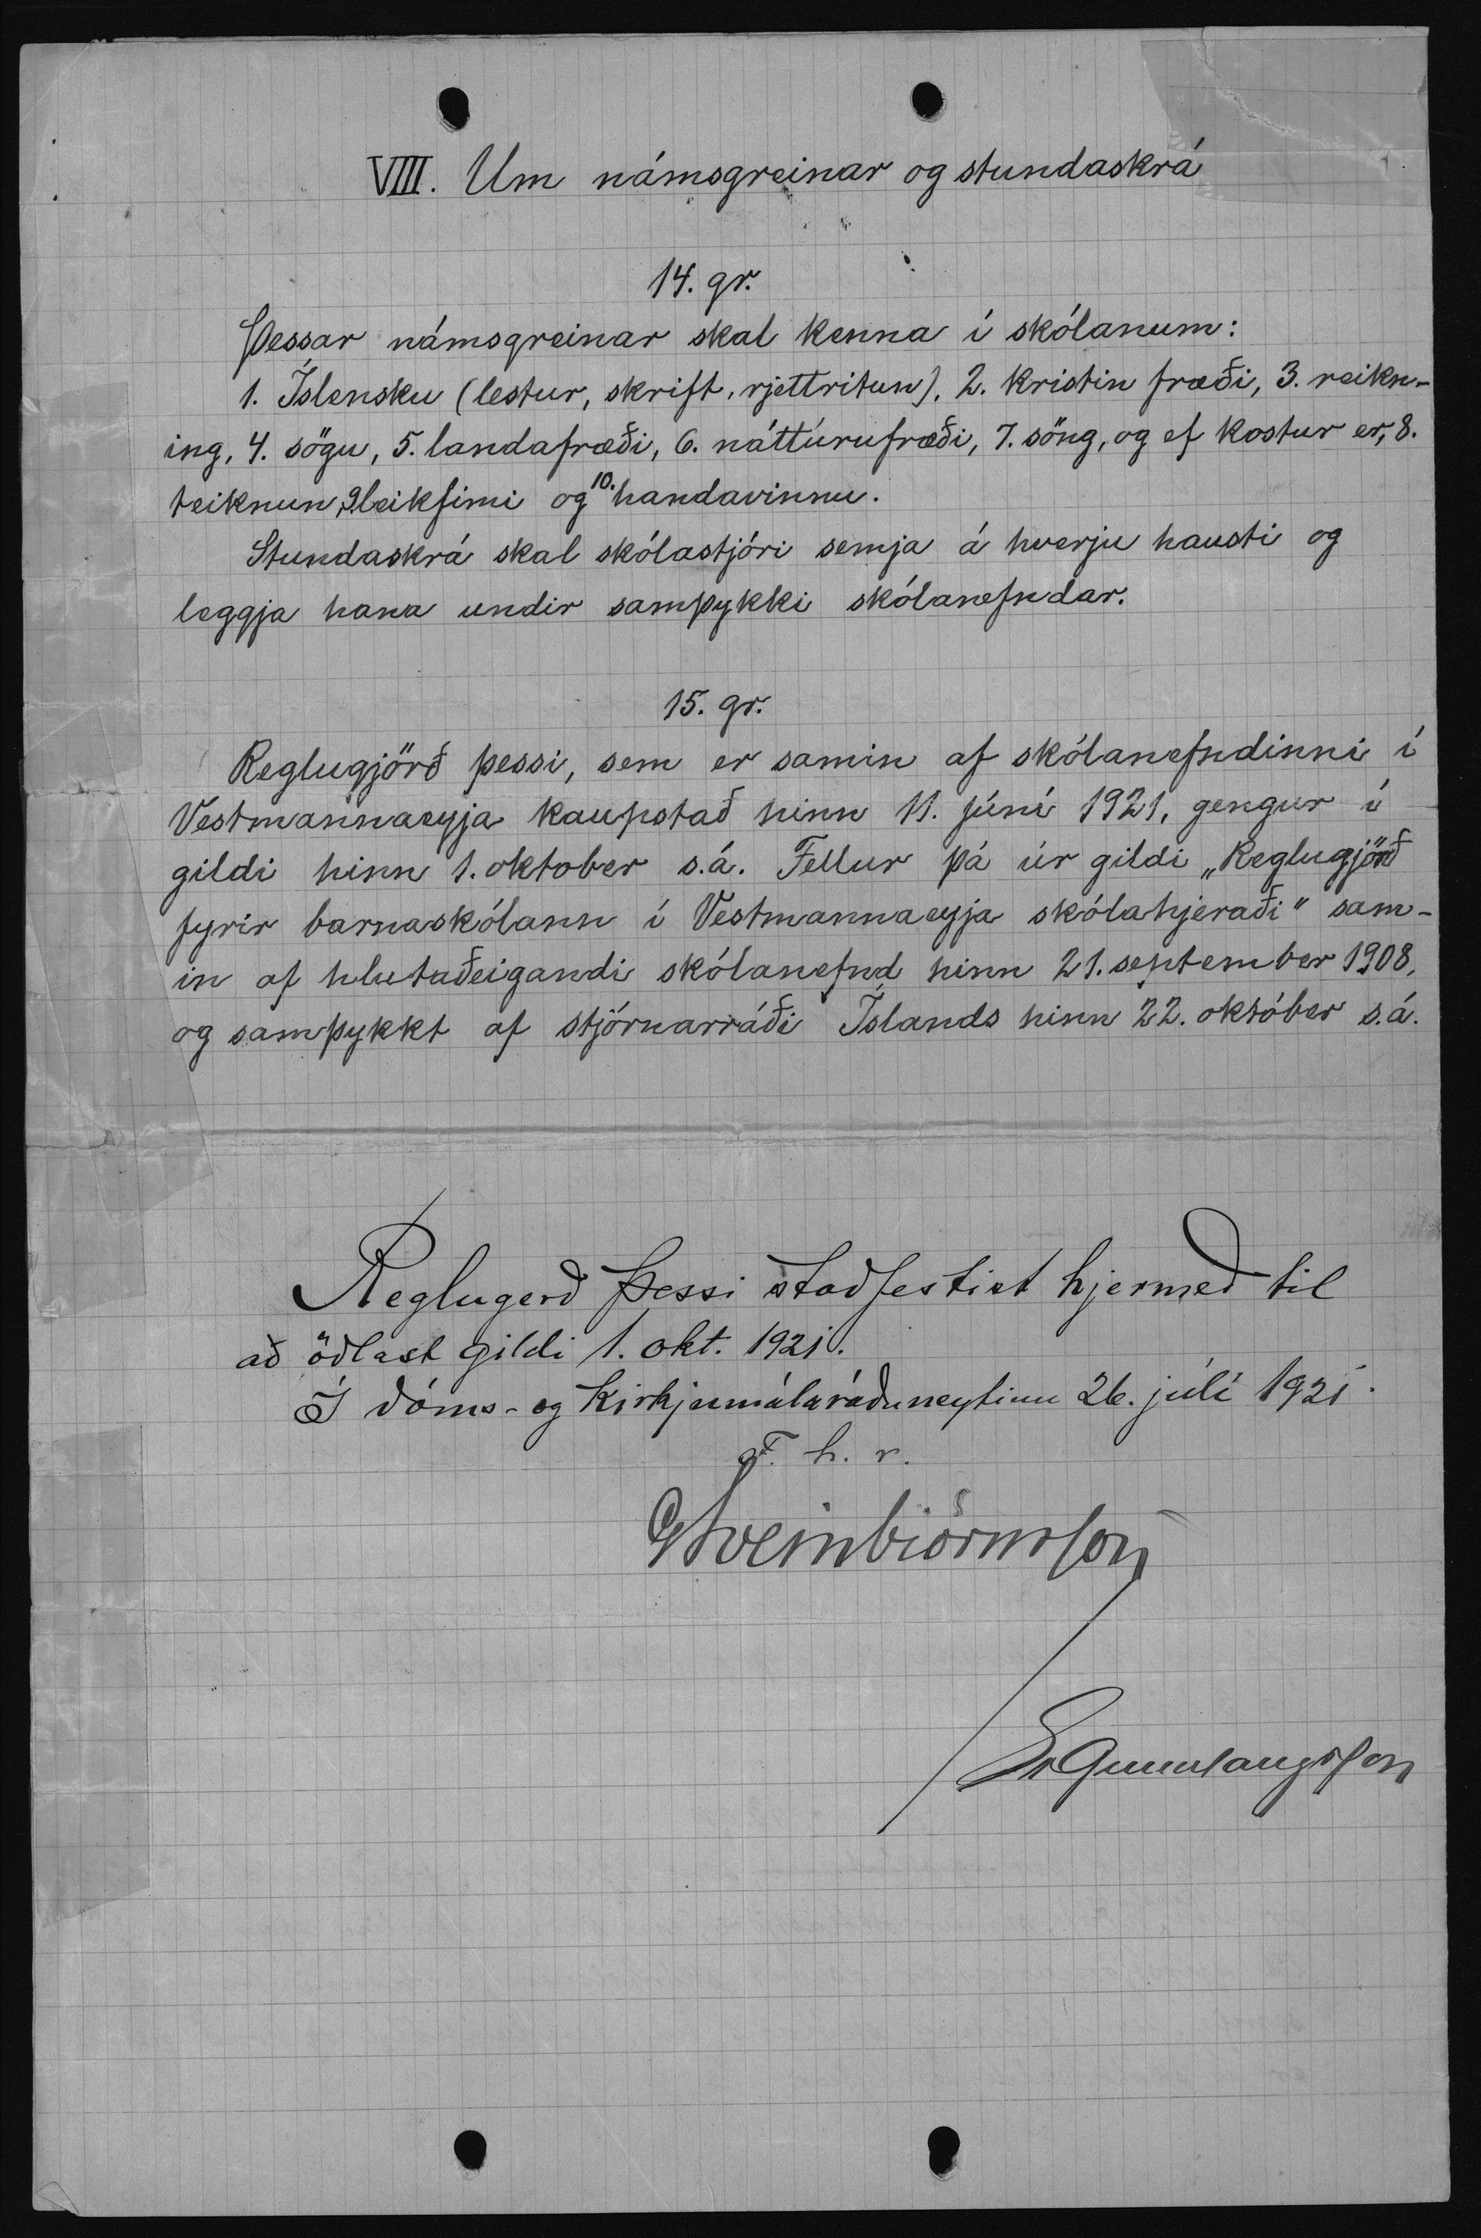 VIII. Um námsgreinar og stundaskrá
14. gr.
Þessar námsgreinar skal kenna í skólanum:
1. Íslensku (lestur, skrift, rjettritun), 2. kristin fræði, 3. reikn-
ing, 4. sögu, 5. landafræði, 6. náttúrufræði, 7. söng, og ef kostur er, 8.
teiknun, 9. leikfimi og 10. handavinnu.
Stundaskrá skal skólastjóri semja á hverju hausti og
leggja hana undir samþykki skólanefndar.
15. gr.
Reglugjörð þessi, sem er samin af skólanefndinni í
Vestmannaeyja kaupstað hinn 11. júní 1921, gengur í
gildi hinn 1. oktober s.á. Fellur þá úr gildi „Reglugjörð
fyrir barnaskólann í Vestmannaeyja skólahjeraði" sam-
in af hlutaðeigandi skólanefnd hinn 21. september 1908,
og samþykkt af stjórnarráði Íslands hinn 22. október s.á.
Reglugerð þessi staðfestist hjermeð til
að öðlast gildi 1. okt. 1921.
Í dóms- og kirkjumálaráðuneytinu 26. júlí 1921.
F. h. r.
GSveinbiörnsson
Gunnlaugsson